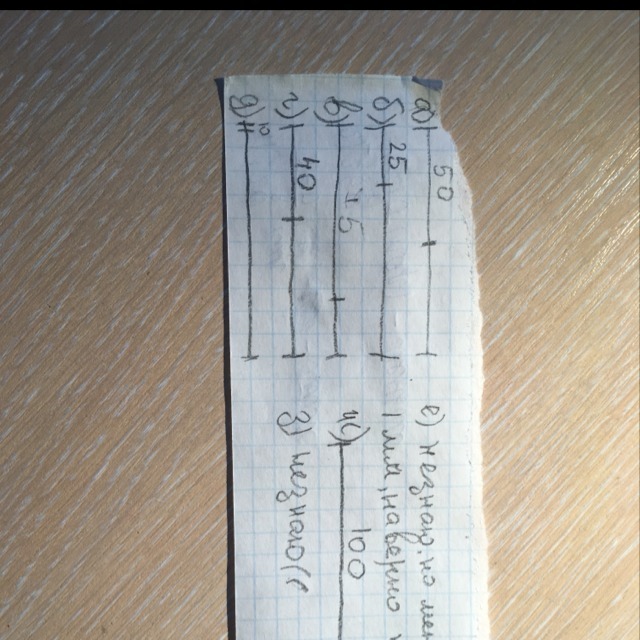 а) 50
б) 25
в) 75
г) 40
д) 0
е) незнаю, но
наверно
ж) 100
з) незнаю(